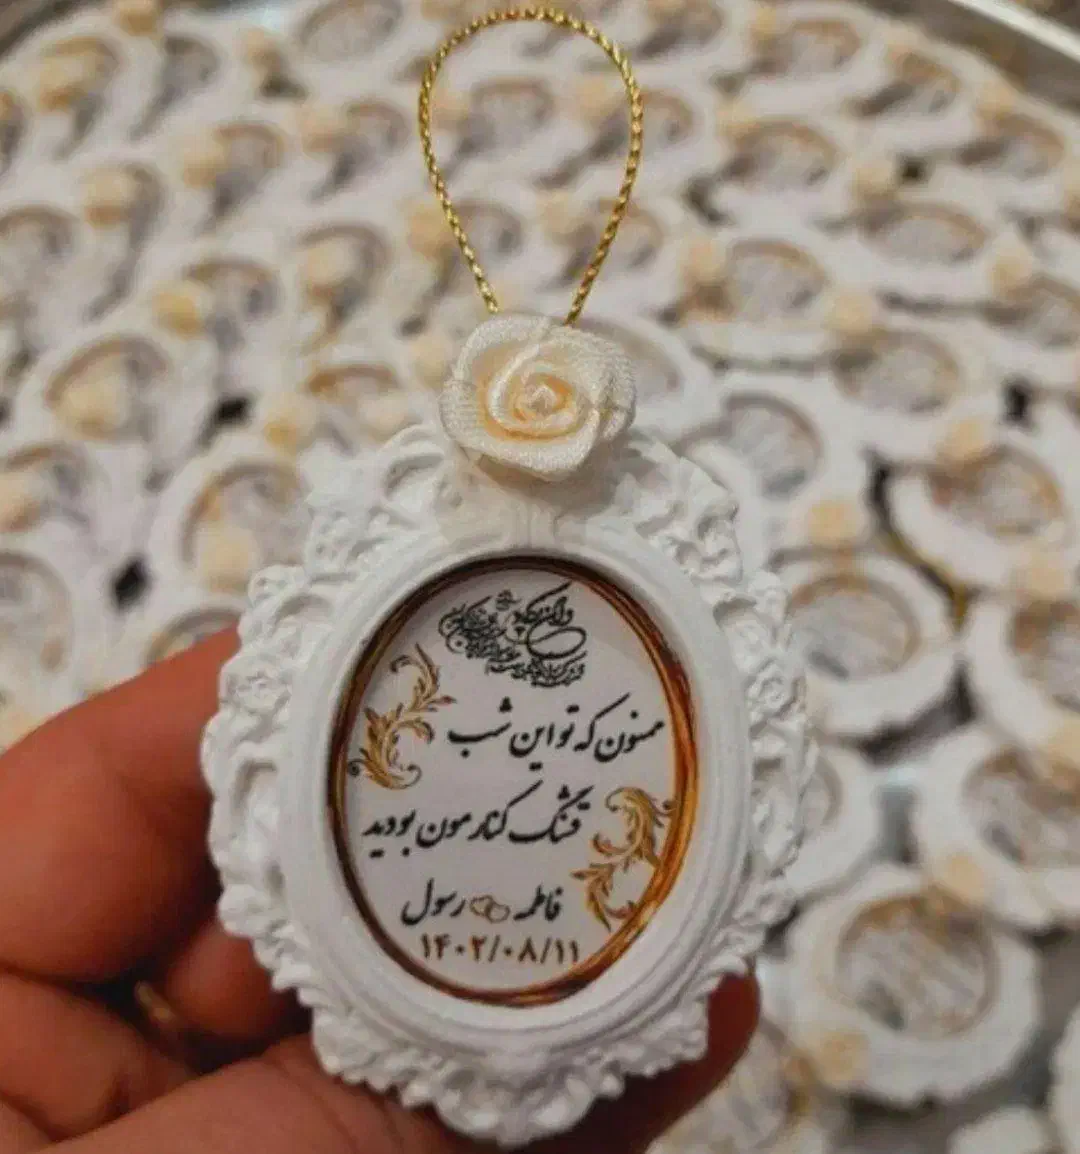 ممنون که تو این شب
قشنگ کنارمون بودید
فاطمه رسول
۱۴۰۲/۰۸/۱۱